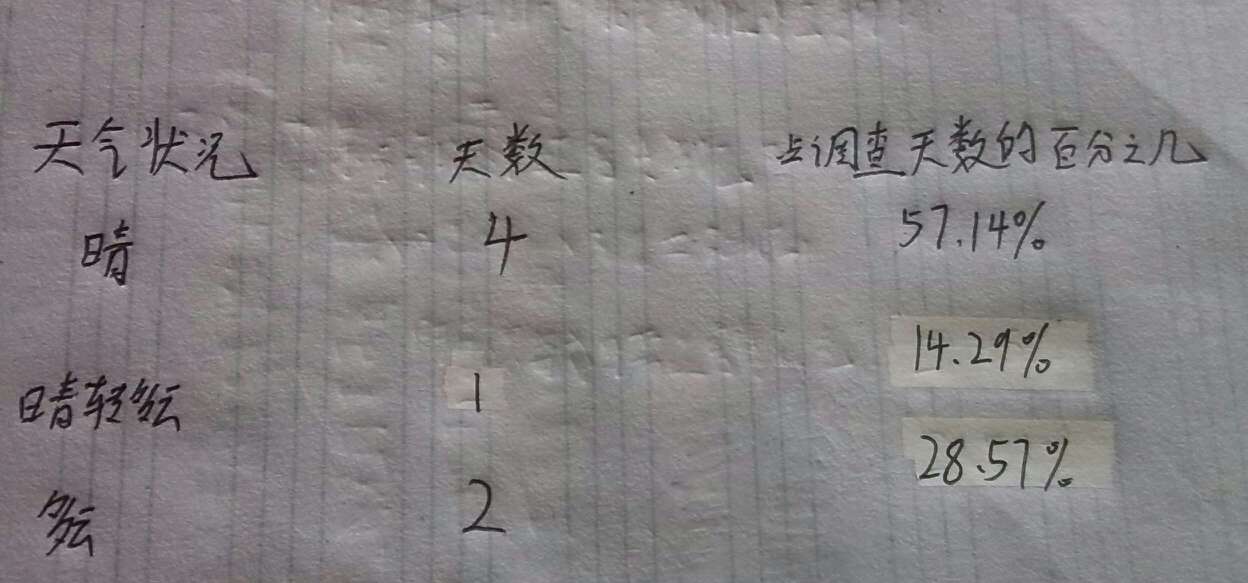 天气状况 天数 占调查天数的百分之几
晴 4 57.14%
晴转多云 1 14.29%
多云 2 28.57%